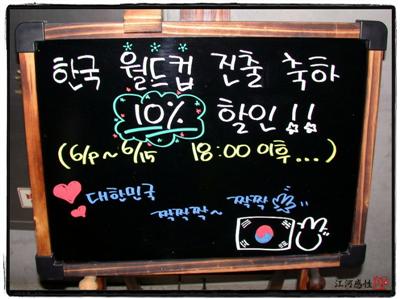 한국 월드컵 진출 축하
10% 할인!!
(6/9~6/15 18:00 이후...)
대한민국
짝짝짝~ 짝짝
江河感性